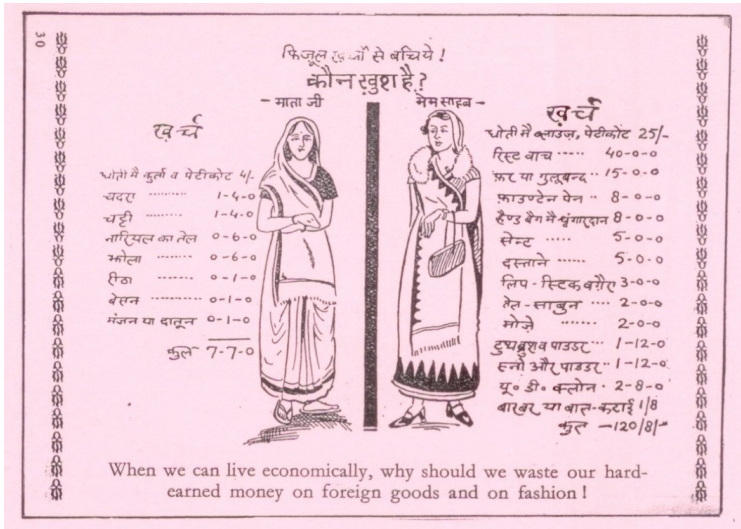 30
फ़िजूल ख़र्चों से बचिये!
कौन ख़ुश है?
- माता जी
मेम साहब -
ख़र्च
धोती मै कुर्ता व पेटीकोट 4/-
चदरा ......... 1-4-0
चट्टी ........ 1-4-0
नारियल का तेल 0-6-0
झोला ........ 0-6-0
रीठा ........ 0-1-0
बेसन ........ 0-1-0
मंजन या दातून 0-1-0
कुल 7-7-0
ख़र्च
धोती मै ब्लाउज़, पेटीकोट 25/-
रिस्ट वाच ...... 40-0-0
फ़र या गुलूबन्द .. 15-0-0
फ़ाउण्टेन पेन .. 8-0-0
हैण्ड बैग मै श्रृंगारदान 8-0-0
सेन्ट ..... 5-0-0
दस्ताने ..... 5-0-0
लिप-स्टिक वग़ैरा 3-0-0
तेल-साबुन .... 2-0-0
मोज़े ....... 2-0-0
टुथब्रुश व पाउडर .. 1-12-0
स्नो और पाउडर .. 1-12-0
यू० डी० क्लोन . 2-8-0
बारबर या बाल-कटाई 1/8
कुल -120/8/-
When we can live economically, why should we waste our hard-
earned money on foreign goods and on fashion!